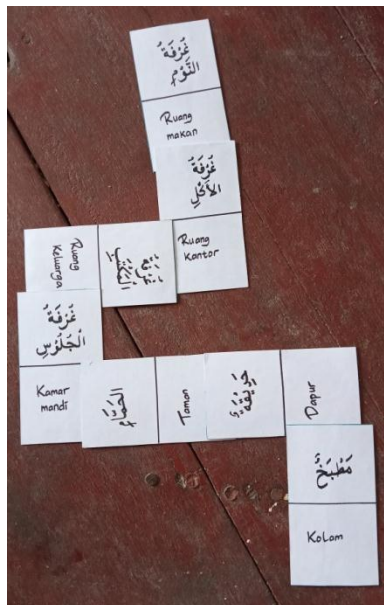 غُرْفَةُ
النَّوْمِ
Ruang
makan
غُرْفَةُ
الأَكْلِ
Ruang
kantor
غُرْفَةُ
الْمَكْتَبِ
Ruang
Keluarga
غُرْفَةُ
الْجُلُوْسِ
Kamar
mandi
الحَمَّامُ
Taman
حَدِيْقَةٌ
Dapur
مَطْبَخٌ
Kolam